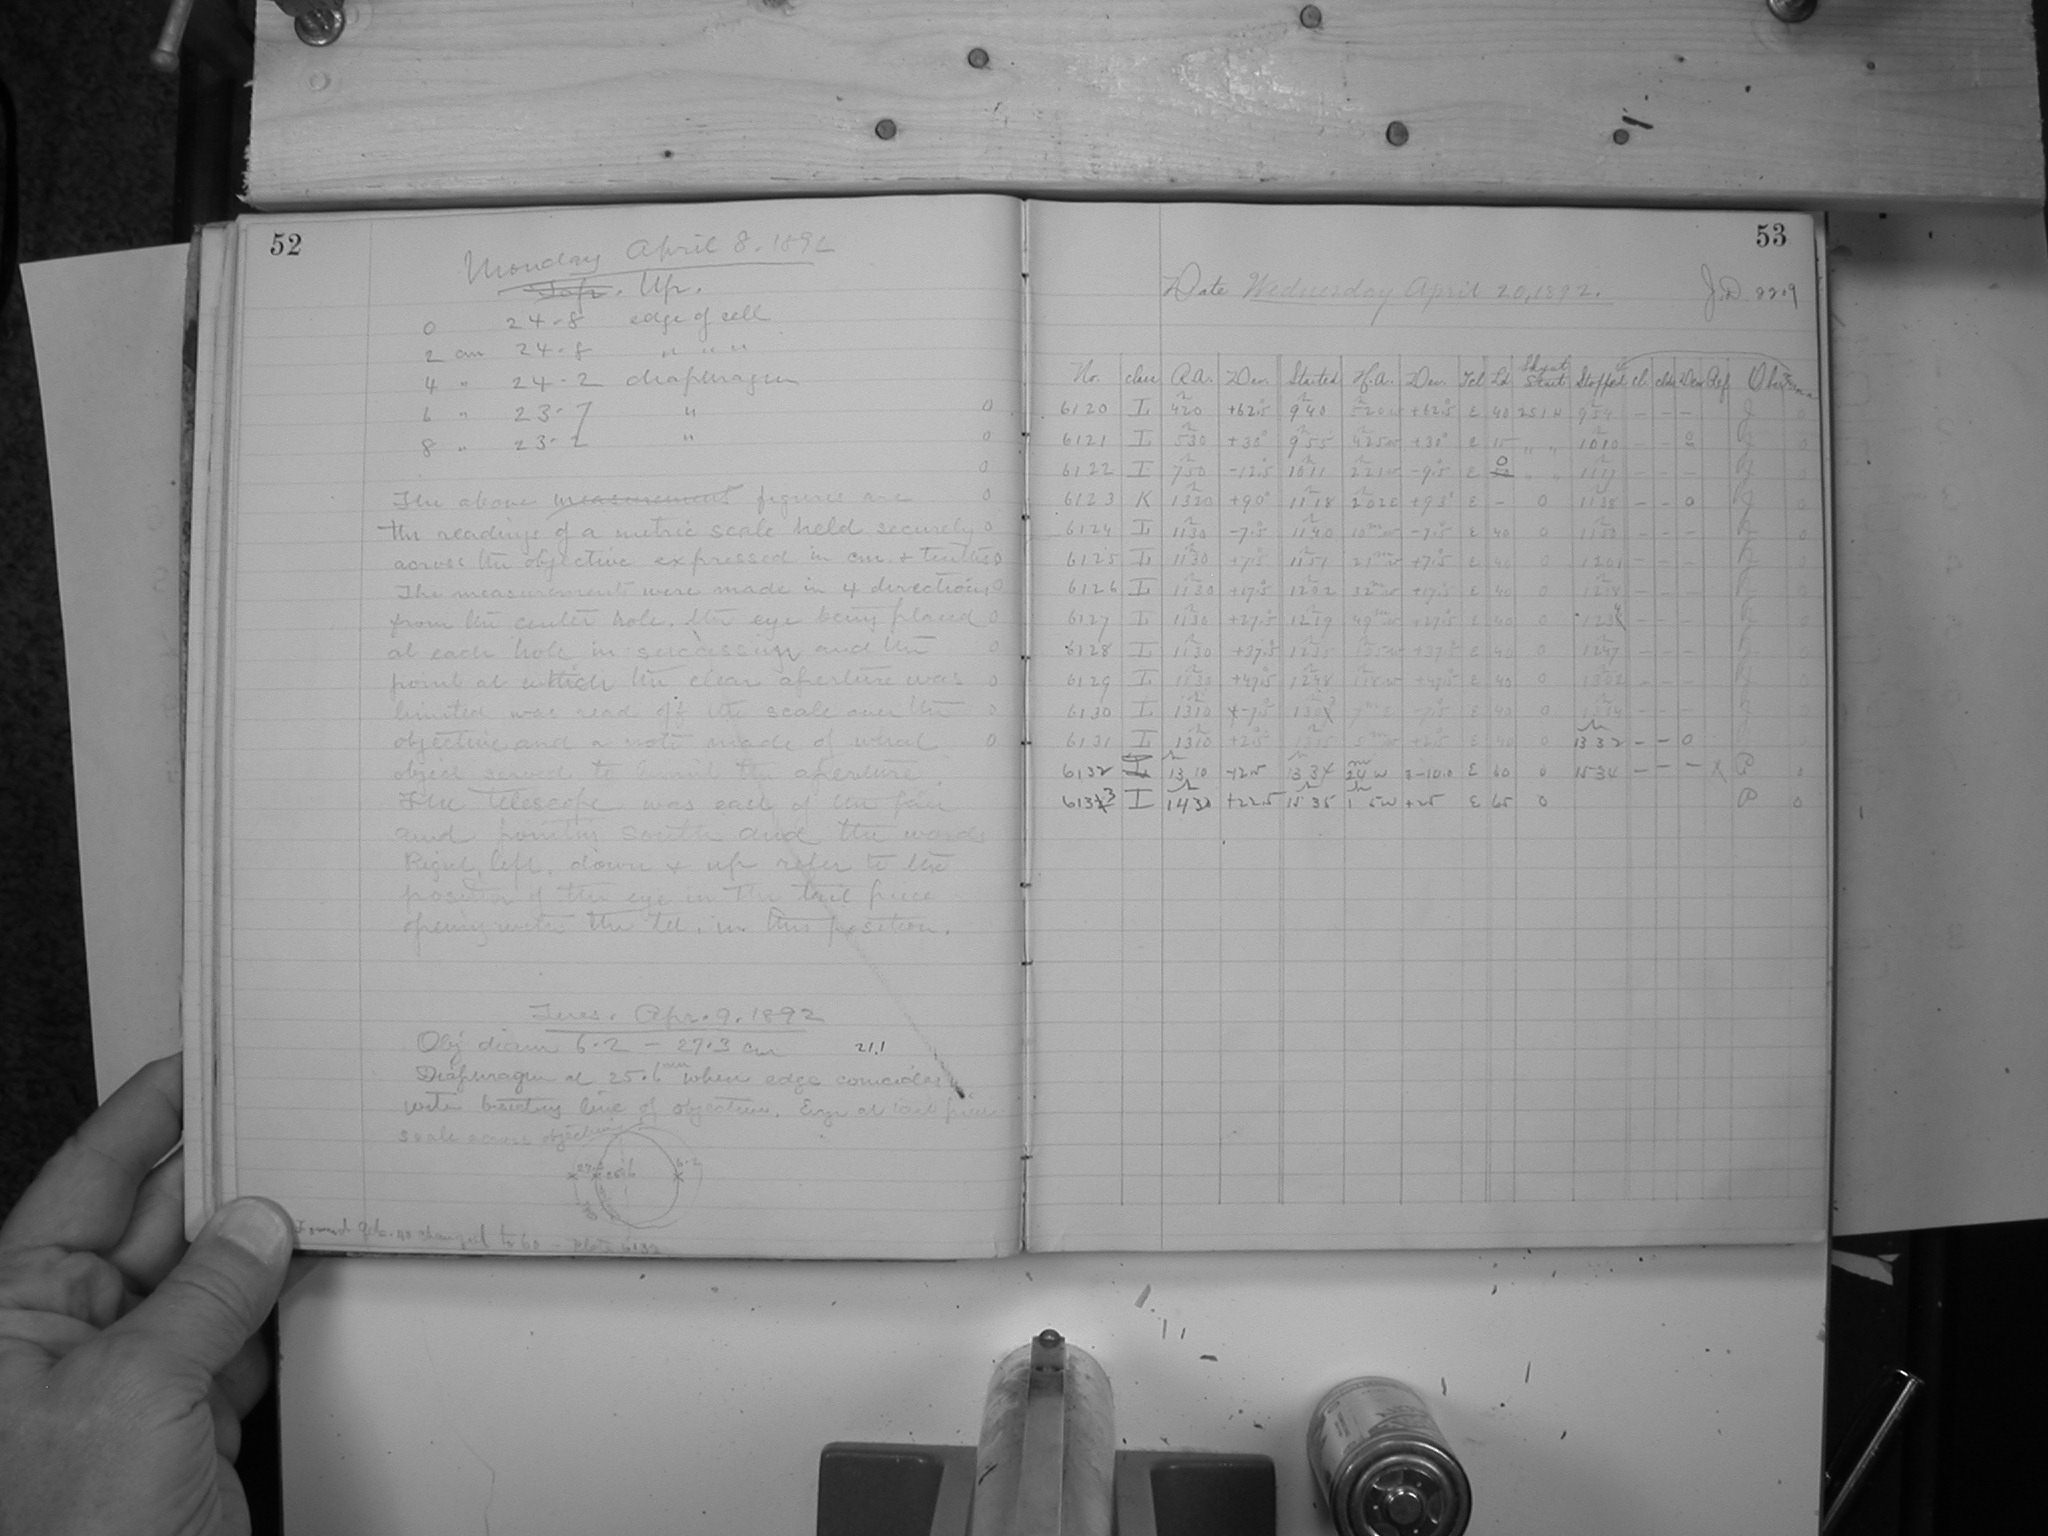 52
Monday April 8. 1892
Up.
0 24.8 edge of cell
2 cm 24.8 " " "
4 " 24.2 diaphragm
6 " 23.7 "
8 " 23.2 "
The above measurement figures are
the readings of a metric scale held securely
across the objective expressed in cm. + tenths
The measurements were made in 4 directions
from the center hole, the eye being placed
at each hole in succession and the
point at which the clear aperture was
limited was read off the scale over the
objective and a note made of what
object served to limit the aperture.
The telescope was east of the pier
and pointing south and the words
Right, left, down + up refer to the
position of the eye in the tail piece
opening with the tel. in this position.
Tues. Apr. 9. 1892
Obj diam 6.2 - 27.3 cm 21.1
Diaphragm at 25.6 cm where edge coincides
with bisecting line of objective. Eye at tail piece
scale across objective
27.3 25.6 6.2
Found changed to 60 - Plate 6132
53
Date Wednesday April 20, 1892. JD 2209
No. class R.A. Dec. Started H.A. Dec. Tel Ld Started Stopped cl. clk Dec Ref Obs
6120 L 420 +62.5 9 40 520w +62.5 E 40 251 9 54 - - - J 0
6121 L 530 +30° 9 55 425w +30° E 15 " " 1010 - - 0 J 0
6122 I 750 -12.5 1011 221w -9.5 E 0 " " 1117 - - - J
6123 K 1320 +90° 1118 202E +93° E - 0 1138 - - 0 J 0
6124 L 1130 -7.5 1140 10m w -7.5 E 40 0 1150 - - - 0
6125 L 1130 +7.5 1151 21m w +7.5 E 40 0 1201 - - - 0
6126 L 1130 +17.5 1202 32m w +17.5 E 40 0 1218 - - -
6127 L 1130 +27.5 1219 49m w +27.5 E 40 0 1234 - - - 0
6128 L 1130 +37.5 1235 105w +37.5 E 40 0 1247 - - -
6129 L 1130 +47.5 1248 118w +47.5 E 40 0 1302 - - -
6130 L 1310 -7.5 1303 7m E -7.5 E 40 0 1314 - - -
6131 L 1310 +2.5 1315 5m w +2.5 E 40 0 1332 - - 0
6132 I 13 10 -12.5 13 34 24m w -10.0 E 60 0 15 34 - - - X P 0
6133 I 1430 +22.5 15 35 1 5w +25 E 65 0 P 0